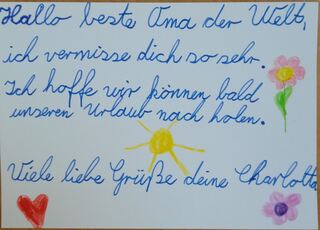 Hallo beste Oma der Welt,
ich vermisse dich so sehr.
Ich hoffe wir können bald
unseren Urlaub nach holen.
Viele liebe Grüße deine Charlotta